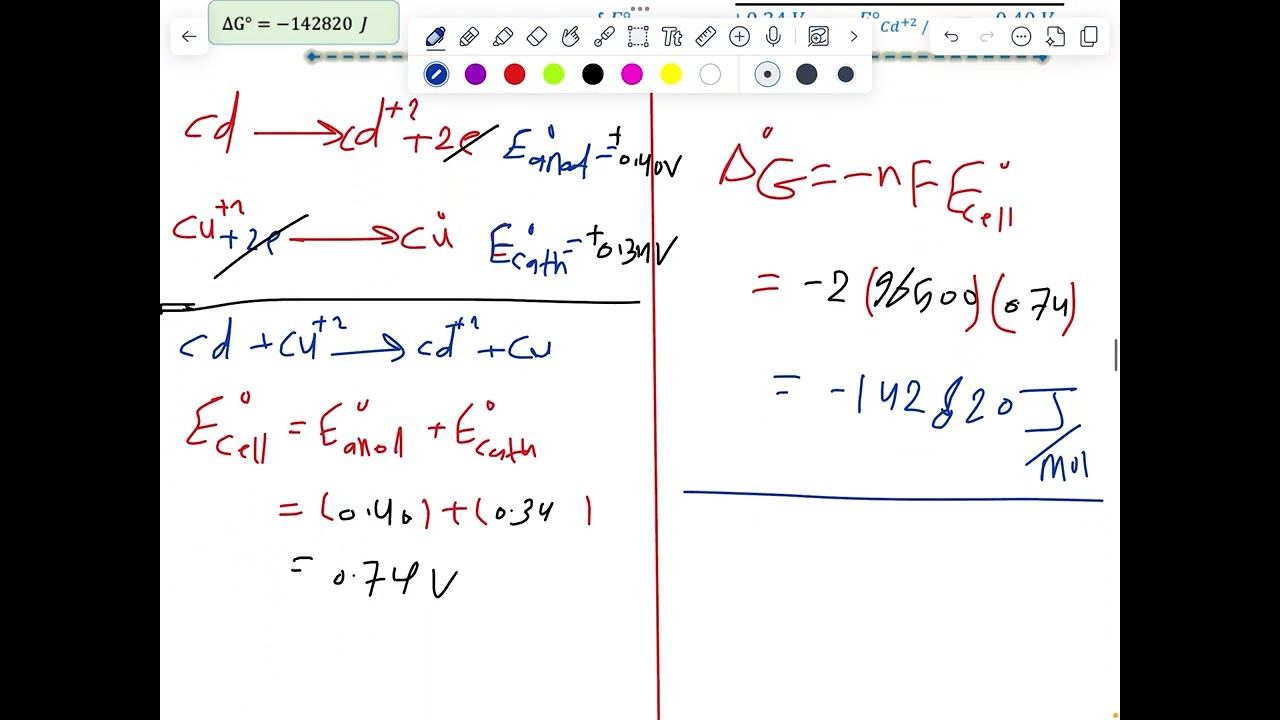 ΔG° = −142820 J
+0.34 V E°Cd+2/ −0.40 V
Tt
Cd → Cd+2 + 2e E°anod = +0.40V
Cu+2 + 2e → Cu° E°Cath = +0.34V
Cd + Cu+2 → Cd+2 + Cu
E°Cell = E°anod + E°Cath
= (0.40) + (0.34)
= 0.74 V
ΔG° = -nFE°Cell
= -2 (96500) (0.74)
= -142820 J/mol